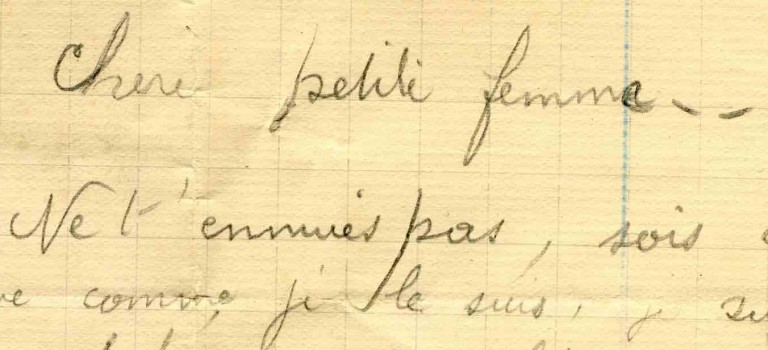 Chère petite femme - -
Ne t'ennuies pas, sois
comme je le suis, je